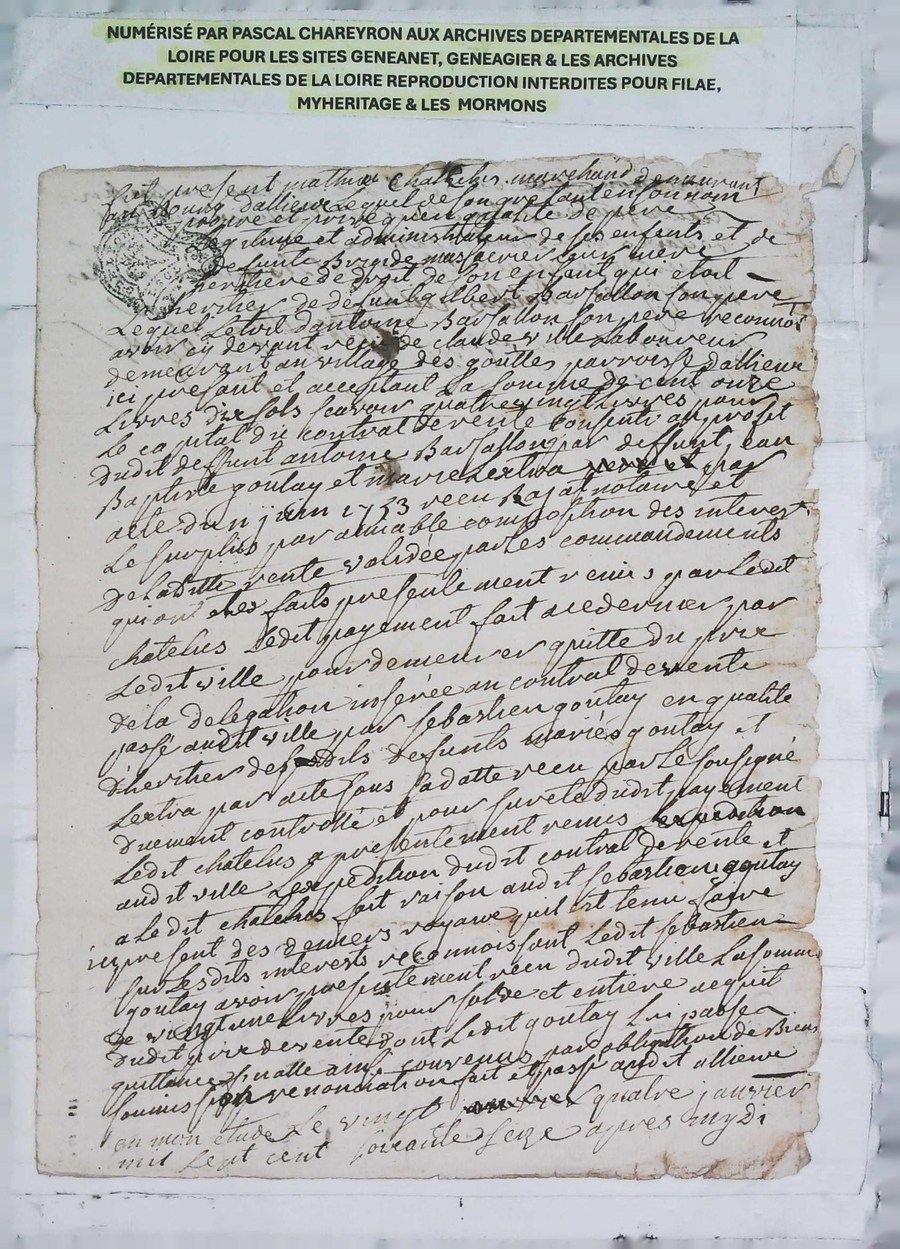 NUMÉRISÉ PAR PASCAL CHAREYRON AUX ARCHIVES DEPARTEMENTALES DE LA
LOIRE POUR LES SITES GENEANET, GENEAGIER & LES ARCHIVES
DEPARTEMENTALES DE LA LOIRE REPRODUCTION INTERDITES POUR FILAE,
MYHERITAGE & LES MORMONS
fut present mathieu Chatelus marchand demeurant
au Bourg dallieu Lequel de son gre tant en son nom
propre et privé quen qualité de pere
Legitime et administrateur de ses enfents et de
defunte massacrier Leur mere
heritiere de droit de son enfant qui etoit
heritier de defunt gilbert Barsallon son pere
Lequel Letoit dantoine Barsallon son pere reconnoit
avoir cy devant receu de claude ville Laboureur
demeurant au village des gouttes parroisse dallieux
ici present et acceptant La somme de cent onze
Livres dix sols scavoir quatrevingt Livres pour
Le capital du contrat de rente consenti au profit
dudit deffunt antoine Barsallon par deffunt jean
Baptiste goutay et marie Lextra par
acte du n juin 1753 receu Rajat notaire et
Le surplus par aimable composition des interest
de Laditte rente validée par les commandements
qui ont etes faits presentement remis par Ledit
chatelus Ledit payement fait a ce dernier par
Ledit ville pour demeurer quitte du prix
de la delegation inserée au contrat de vente
passé audit ville par sebastien goutay en qualité
dheritier desdits defunts mariés goutay et
Lextra par acte sous sa datte receu par Le soussigné
duement controllé et pour sureté dudit payement
Ledit chatelus a presentement remis
audit ville Lexpedition dudit contrat de rente et
a Ledit chatelus fait raison audit sebastien goutay
icy present des deniers royaux quil est tenu faire
sur Lesdits interests reconnoissant Ledit sebastien
goutay avoir presentement receu dudit ville La somme
de vingt une Livres pour solde et entiere acquit
dudit prix de vente dont Ledit goutay Lui passe
quittance finalle ainsi convenus par obligation de Biens
soumission renonciation fait et passé audit allieux
en mon étude Le vingt quatre janvier
mil sept cent soixante seize apres mydi